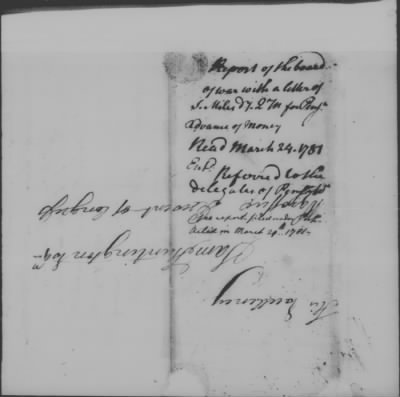 Report of the board
of war with a letter of
S. Miles Dy. Q M for Penja
advance of Money
Read March 24. 1781
Referred to the
delegates of
See report filed under
Acted on March 29th 1781-
His Excellency
Saml Huntington Esqr
President of Congress